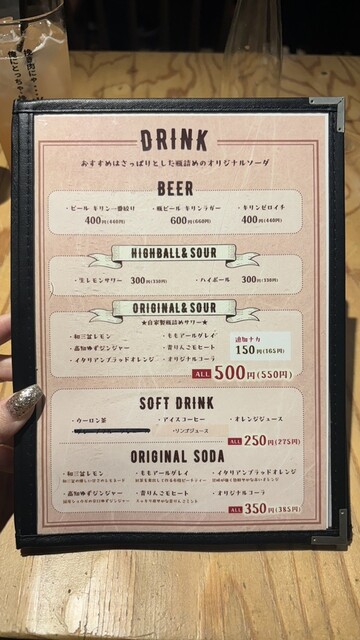 DRINK
おすすめはさっぱりとした瓶詰めのオリジナルソーダ
BEER
・ビール キリン一番絞り ・瓶ビール キリンラガー ・キリンゼロイチ
400円(440円) 600円(660円) 400円(440円)
HIGHBALL&SOUR
・生レモンサワー 300円(330円) ・ハイボール 300円(330円)
ORIGINAL&SOUR
★自家製瓶詰めサワー★
・和三盆レモン ・ももアールグレイ
・ゆずジンジャー ・青りんごモヒート
・イタリアンブラッドオレンジ ・オリジナルコーラ
追加ナカ
150円(165円)
ALL 500円(550円)
SOFT DRINK
・ウーロン茶 ・アイスコーヒー ・オレンジジュース
・リンゴジュース
ALL 250円(275円)
ORIGINAL SODA
・和三盆レモン ・ももアールグレイ ・イタリアンブラッドオレンジ
・ゆずジンジャー ・青りんごモヒート ・オリジナルコーラ
ALL 350円(385円)